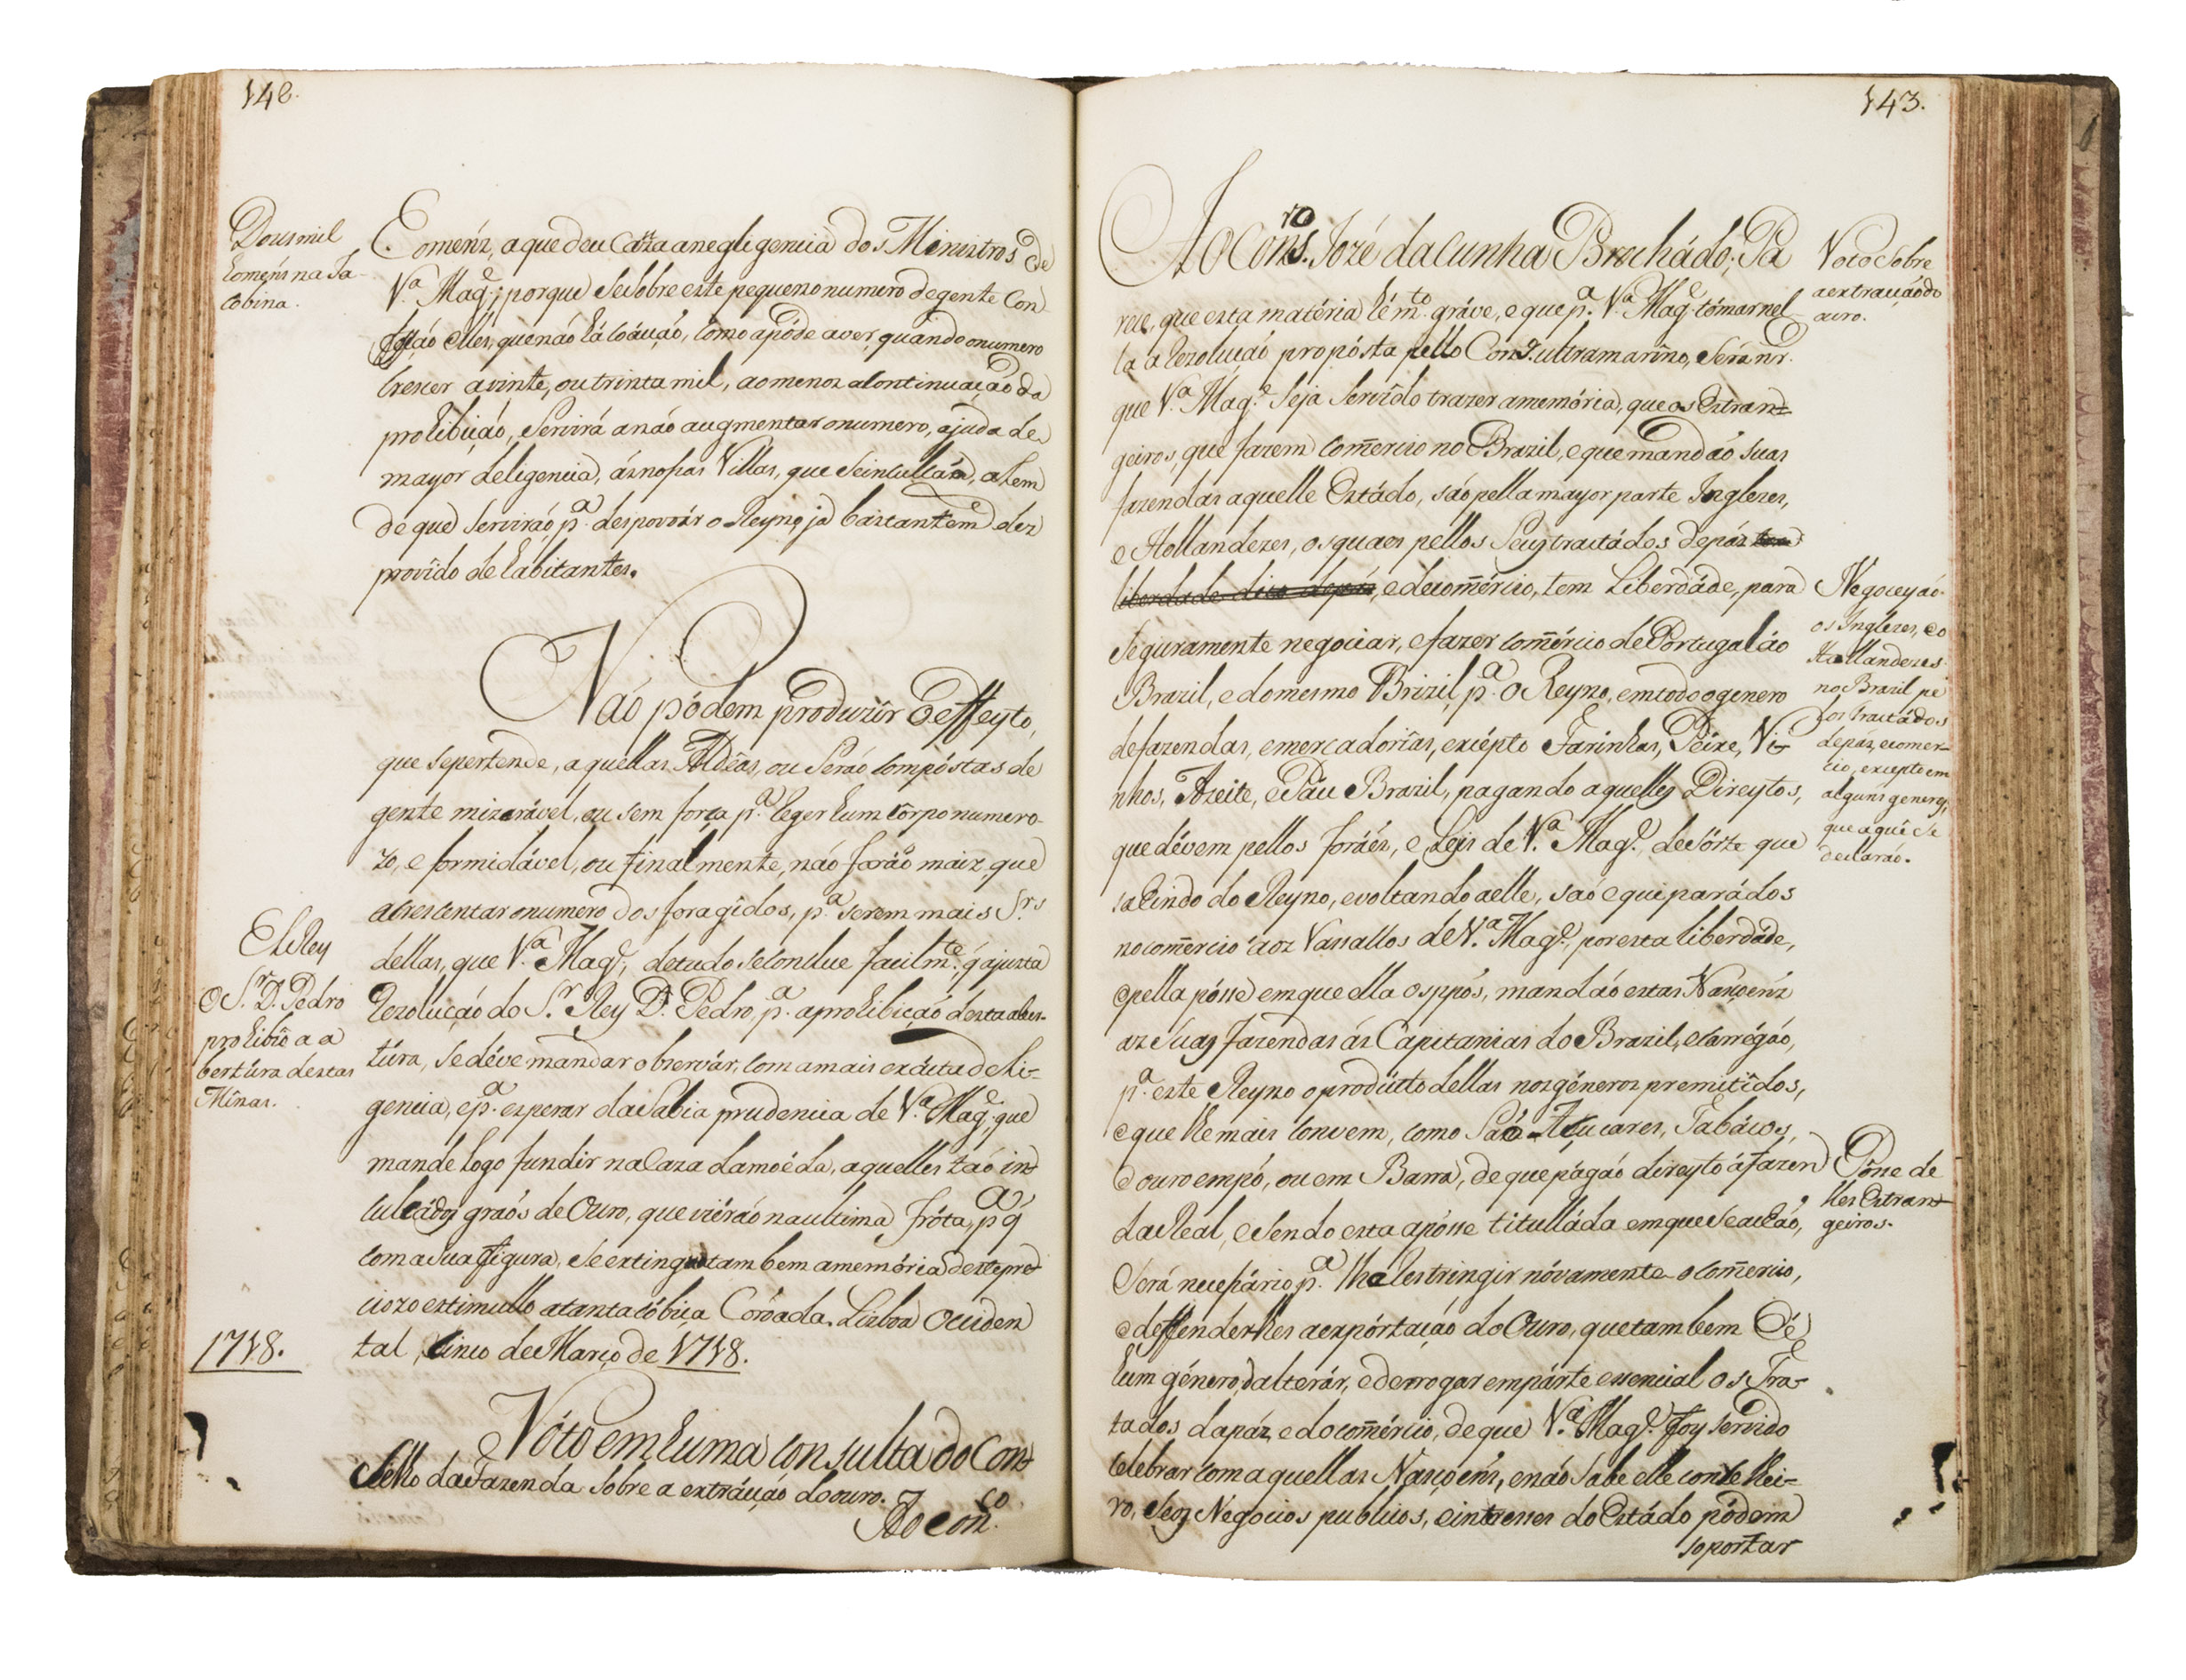 142.
Dous mil
homẽns na Ja-
cobina.
homẽns, a que deu cauza a negligencia dos Ministros de
V.ª Mag.e; porque se sobre este pequeno numero de gente con
fessáo elles, que náo há coáução, como a póde aver, quando o numero
crescer a vinte, ou trinta mil, ao menos a continuação da
prohibiçáo, servirá a náo augmentar o numero, ajuda de
mayor deligencia, ás nossas Villas, que se incultaõ, alem
de que serviráo p.ª despovoár o Reyno, já bastantem.e des
provîdo de habitantes.
Náo pódem produzîr o effeyto,
que se pertende, aquellas Aldêas, ou Seráo compóstas de
gente mizerável, ou sem força p.ª reger hum côrpo numero-
zo, e formidável, ou finalmente, náo faráõ mais, que
acrescentar o numero dos foragîdos, p.ª serem mais S.rs
dellas, que V.ª Mag.e, de tudo se conclue facilm.te q́ a justa
Rezoluçáo do S.r Rey D. Pedro, p.ª a prohibiçáo desta aber-
túra, se déve mandar observár, com a mais exácta deli-
gencia, e p.ª esperar da Sabia prudencia de V.ª Mag.e, que
mande logo fundir na Caza da moéda, aquelles taó in
culcádos graós de Ouro, que viéráo na ultima fróta, p.ª q́
com a sua figura, se extingua tambem a memória deste pre
ciozo estimullo a tanta cóbiça Coroada. Lisboa Occiden
tal, cinco de Março de 1718.
ElRey
O S.r D. Pedro
prohibîo a a
bertúra destas
Mînas.
1718.
Vóto em huma consulta do Con
selho da Fazenda sobre a extráçáo do ouro.
Ao Con.ro
143.
Ao Cons.ro Jozé da Cunha Brochádo; Pa
rece, que esta matéria hé m.to gráve, e que p.ª V.ª Mag.e tómar nel-
la a Rezoluçáó propósta pello Cons.o ultramarîno, Será
que V.ª Mag.e Seja Servîdo trazer a memória, que os Estran
geiros, que fazem comercio no Brazil, e que mandáó suas
fazendas a quelle Estádo, sáo pella mayor parte Inglezes,
e Hollandezes, os quaes pellos Seus tractádos de páz tem
liberdade dico de páz, e de comércio, tem Liberdáde, para
seguramente negociar, e fazer comércio de Portugal áo
Brazil, e do mesmo Brizil, p.ª o Reyno, em todo o genero
de fazendas, e mercadorîas, excépto Farinhas, Peixe, Vi-
nhos, Azeite, e Páu Brazil, pagando aquelles Direytos,
que dévem pellos foráes, e Leys de V.ª Mag.e, de sórte que
sahindo do Reyno, e voltando a elle, saó equiparádos
no comércio áoz Vassallos de V.ª Mag.e, por esta liberdáde,
e pella pósse em que ella os ppôs, mandáo estas Naçoẽns
as Suas fazendas ás Capitanias do Brazil, e carrégáo,
p.ª este Reyno o prodúcto dellas nos géneros premitîdos,
e que lhe mais convem, como São Açucares, Tabácos,
e ouro em pó, ou em Barra, de que págáó direyto á fazen
da Real, e Sendo esta a pósse titulláda em que se acháo,
Será necessário p.ª lha Restringir nóvamente o comercio,
e deffender-lhes a expórtaçáo do Ouro, que tambem hé
hum género, alterár, e derrogar em párte essencial os Tra-
tados da páz, e do comércio, de que V.ª Mag.e foy servido
celebrar com aquellas Naçoẽns, e náó Sabe elle conselhei-
ro, se os Negocios publicos, e interesses do Estádo pódem
soportar
Voto Sobre
a extraçáo do
ouro.
Negoceyáo
os Inglezes, e o
Hollandezes
no Brazil pe
los tractádos
de páz, e comer-
cio, excepto em
alguns generos,
que aquî se
declaráo.
Pósse de
lles Estran
geiros.